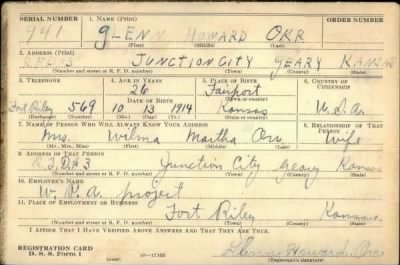 SERIAL NUMBER 1. NAME (Print) ORDER NUMBER
941 GLENN HOWARD ORR
(First) (Middle) (Last)
2. ADDRESS (Print)
R.F.D. 3 JUNCTION CITY GEARY KANSAS
(Number and street or R. F. D. number) (Town) (County) (State)
3. TELEPHONE 4. AGE IN YEARS 5. PLACE OF BIRTH 6. COUNTRY OF CITIZENSHIP
26 Fairport
DATE OF BIRTH (Town or county)
Fort Riley 569 10 13 1914 Kansas U.S.A.
(Exchange) (Number) (Mo.) (Day) (Yr.) (State or country)
7. NAME OF PERSON WHO WILL ALWAYS KNOW YOUR ADDRESS 8. RELATIONSHIP OF THAT PERSON
Mrs. Wilma Martha Orr Wife
(Mr., Mrs., Miss) (First) (Middle) (Last)
9. ADDRESS OF THAT PERSON
R.F.D. #3 Junction City Geary Kansas
(Number and street or R. F. D. number) (Town) (County) (State)
10. EMPLOYER'S NAME
W.P.A. project
11. PLACE OF EMPLOYMENT OR BUSINESS
Fort Riley Kansas
(Number and street or R. F. D. number) (Town) (County) (State)
I AFFIRM THAT I HAVE VERIFIED ABOVE ANSWERS AND THAT THEY ARE TRUE.
REGISTRATION CARD
D. S. S. Form 1 (over) 16—17105 Glenn Howard Orr
(Registrant's signature)